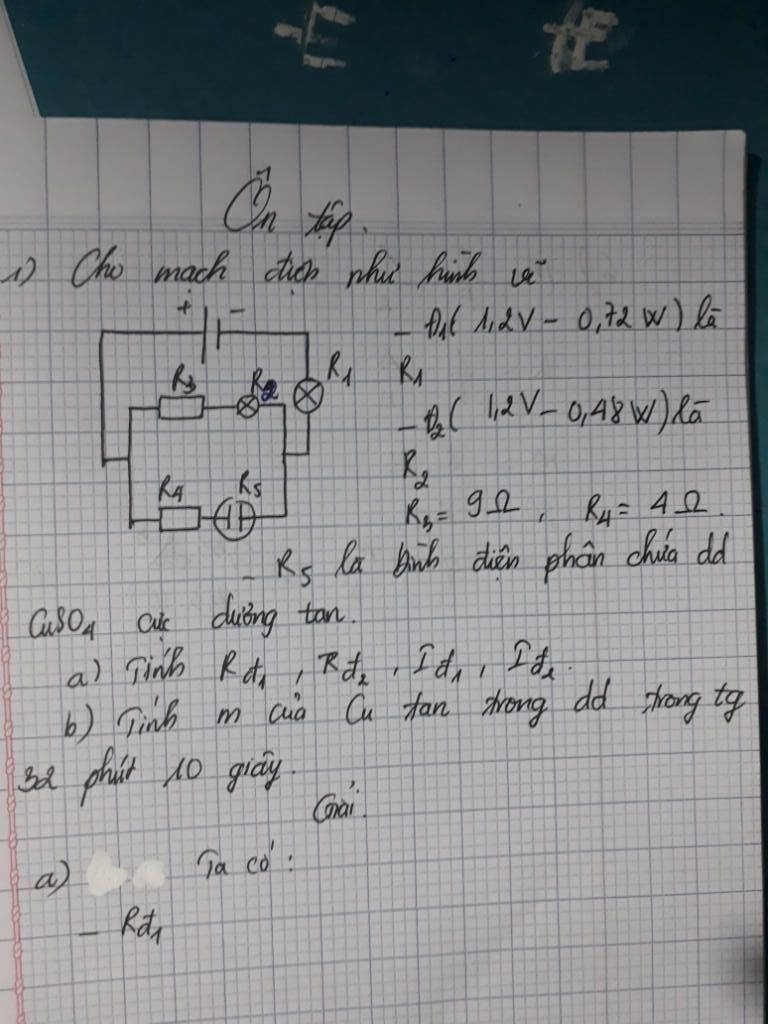 Ôn tập.
1) Cho mạch điện như hình vẽ
+ -
- Đ1( 1,2V - 0,72 W) là
R1
R3
R2
R1
- Đ2( 1,2V - 0,48W) là
R2
R4
R5
R3 = 9Ω , R4 = 4Ω.
- R5 là bình điện phân chứa dd
CuSO4 cực dương tan.
a) Tính Rđ1 , Rđ2 , Iđ1 , Iđ2.
b) Tính m của Cu tan trong dd trong tg
32 phút 10 giây.
Giải.
a) Ta có :
- Rđ1